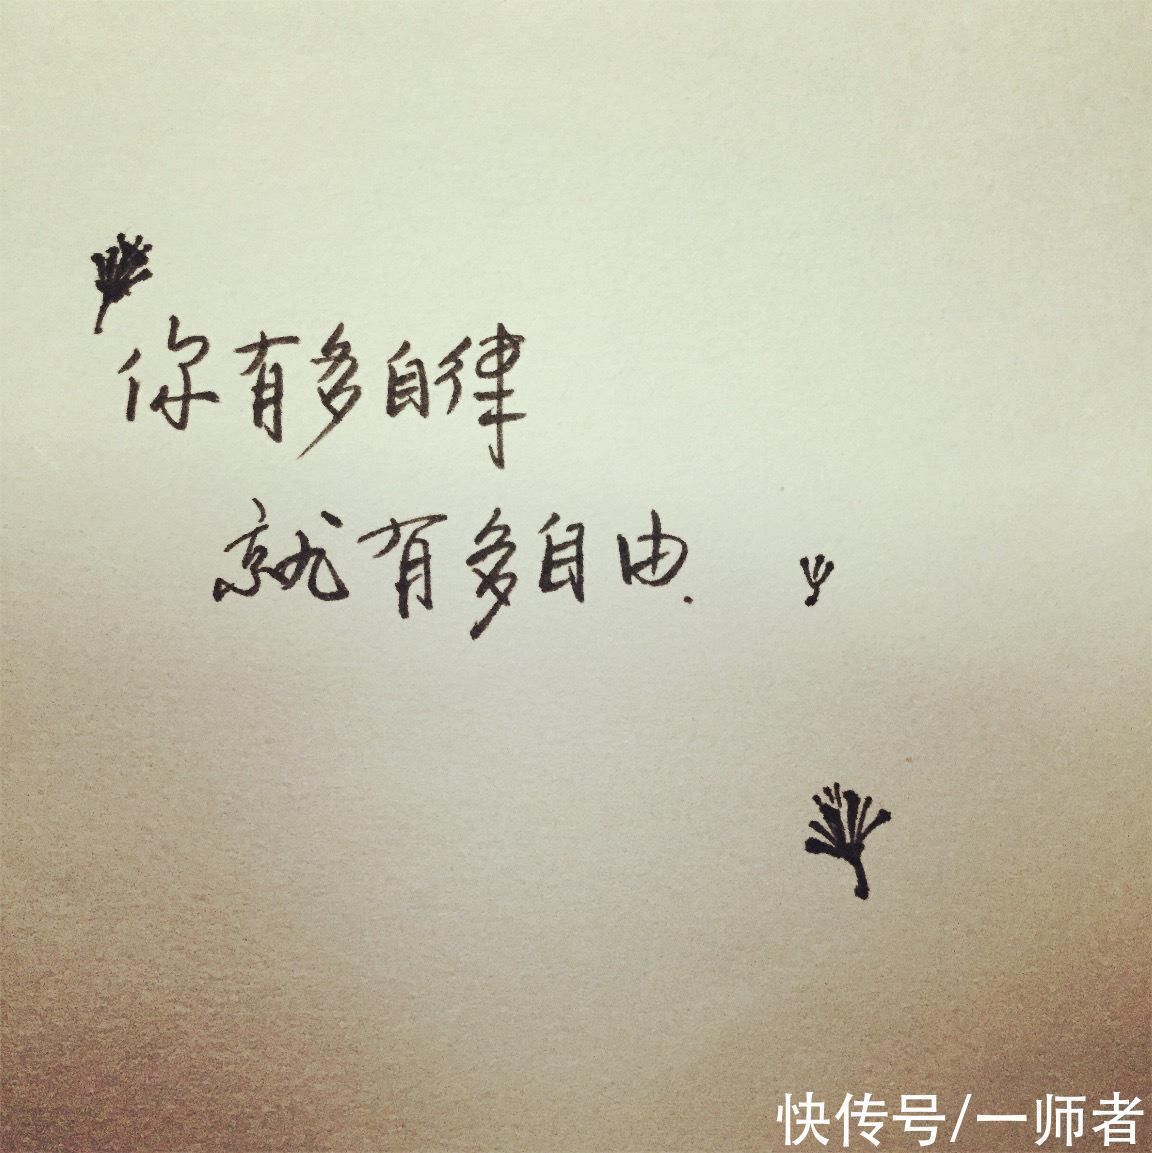 你有多自律
就有多自由.
快传号/一师者